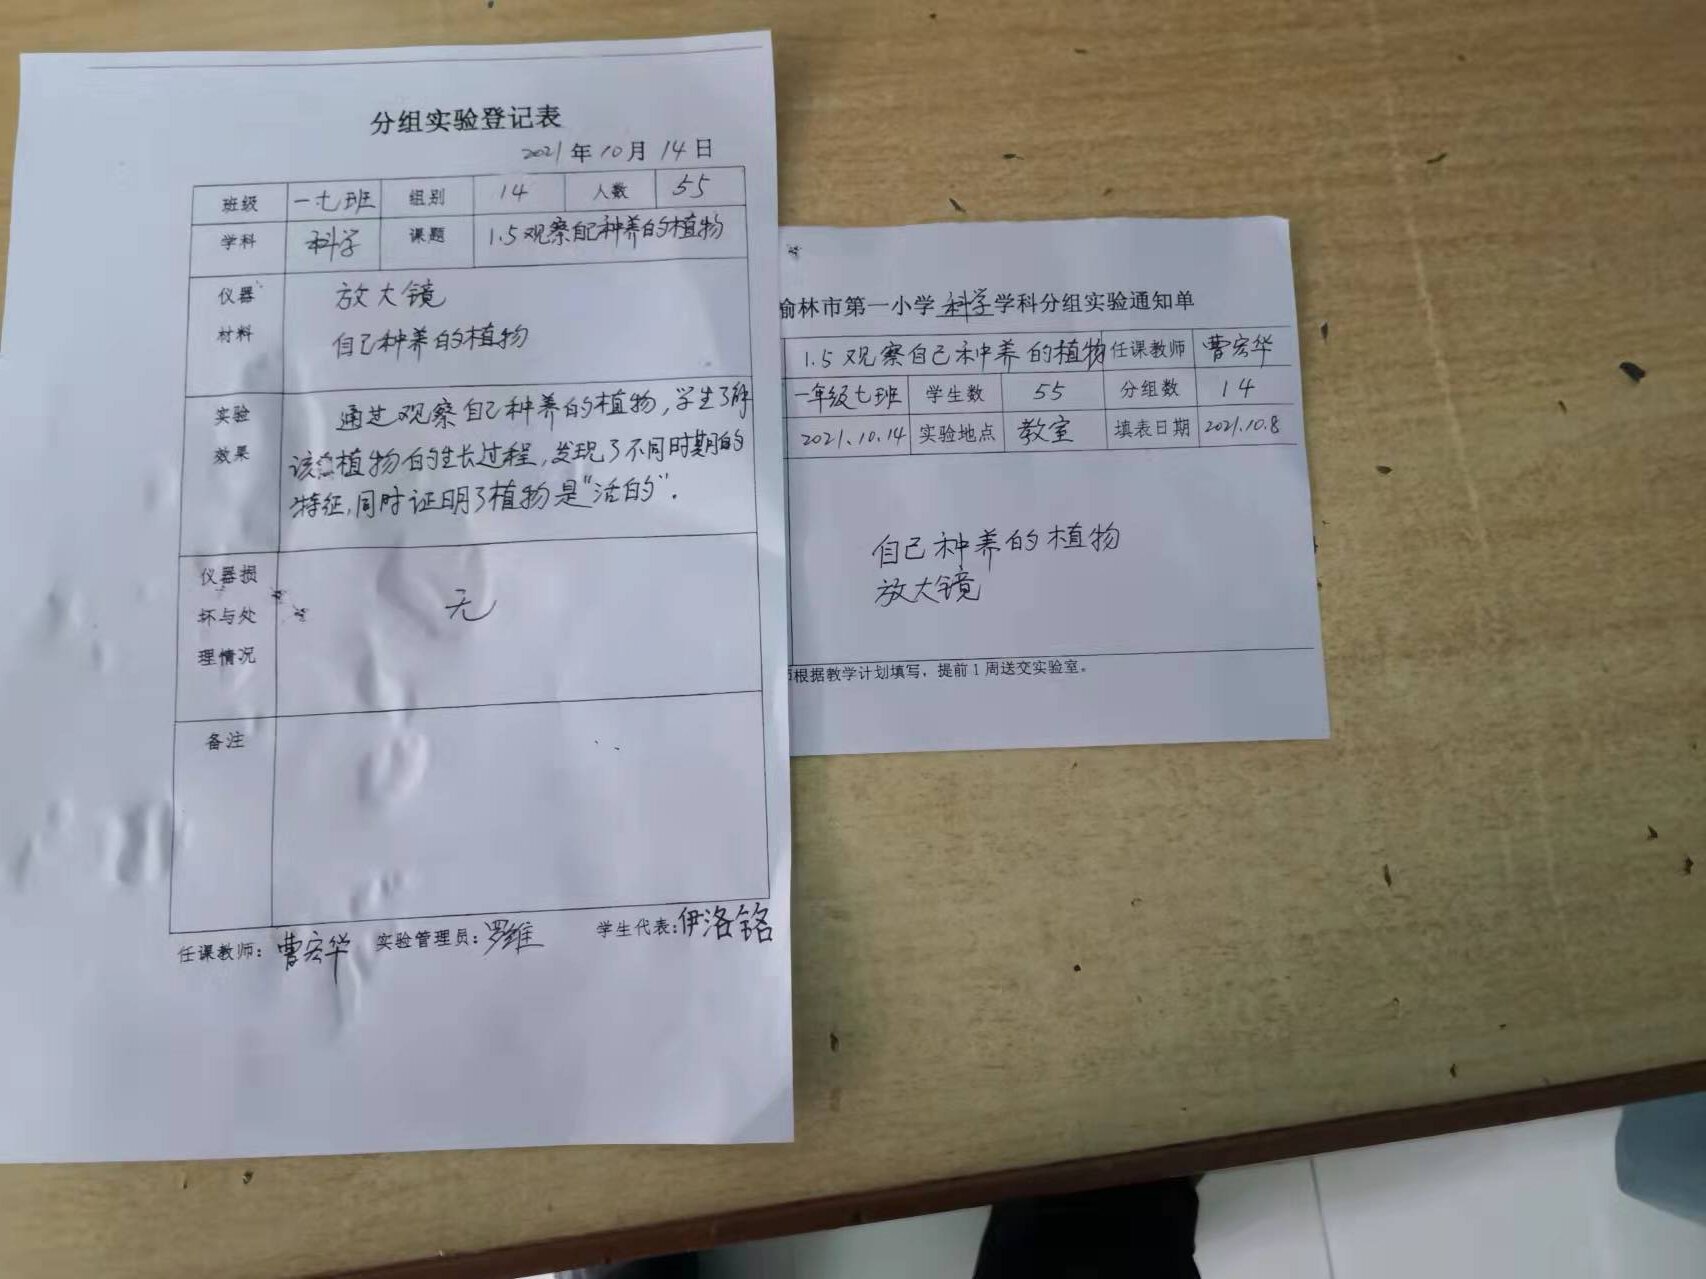 分组实验登记表
2021年10月14日
班级 一七班 组别 14 人数 55
学科 科学 课题 1.5观察自己种养的植物
仪器 放大镜
材料 自己种养的植物
实验 通过观察自己种养的植物,学生了解
效果 该植物的生长过程,发现了不同时期的
特征,同时证明了植物是“活的”.
仪器损
坏与处 无
理情况
备注
任课教师: 曹宏华 实验管理员: 罗维 学生代表: 伊洛铭
榆林市第一小学科学学科分组实验通知单
1.5 观察自己种养的植物 任课教师 曹宏华
一年级七班 学生数 55 分组数 14
2021.10.14 实验地点 教室 填表日期 2021.10.8
自己种养的植物
放大镜
根据教学计划填写，提前1周送交实验室。